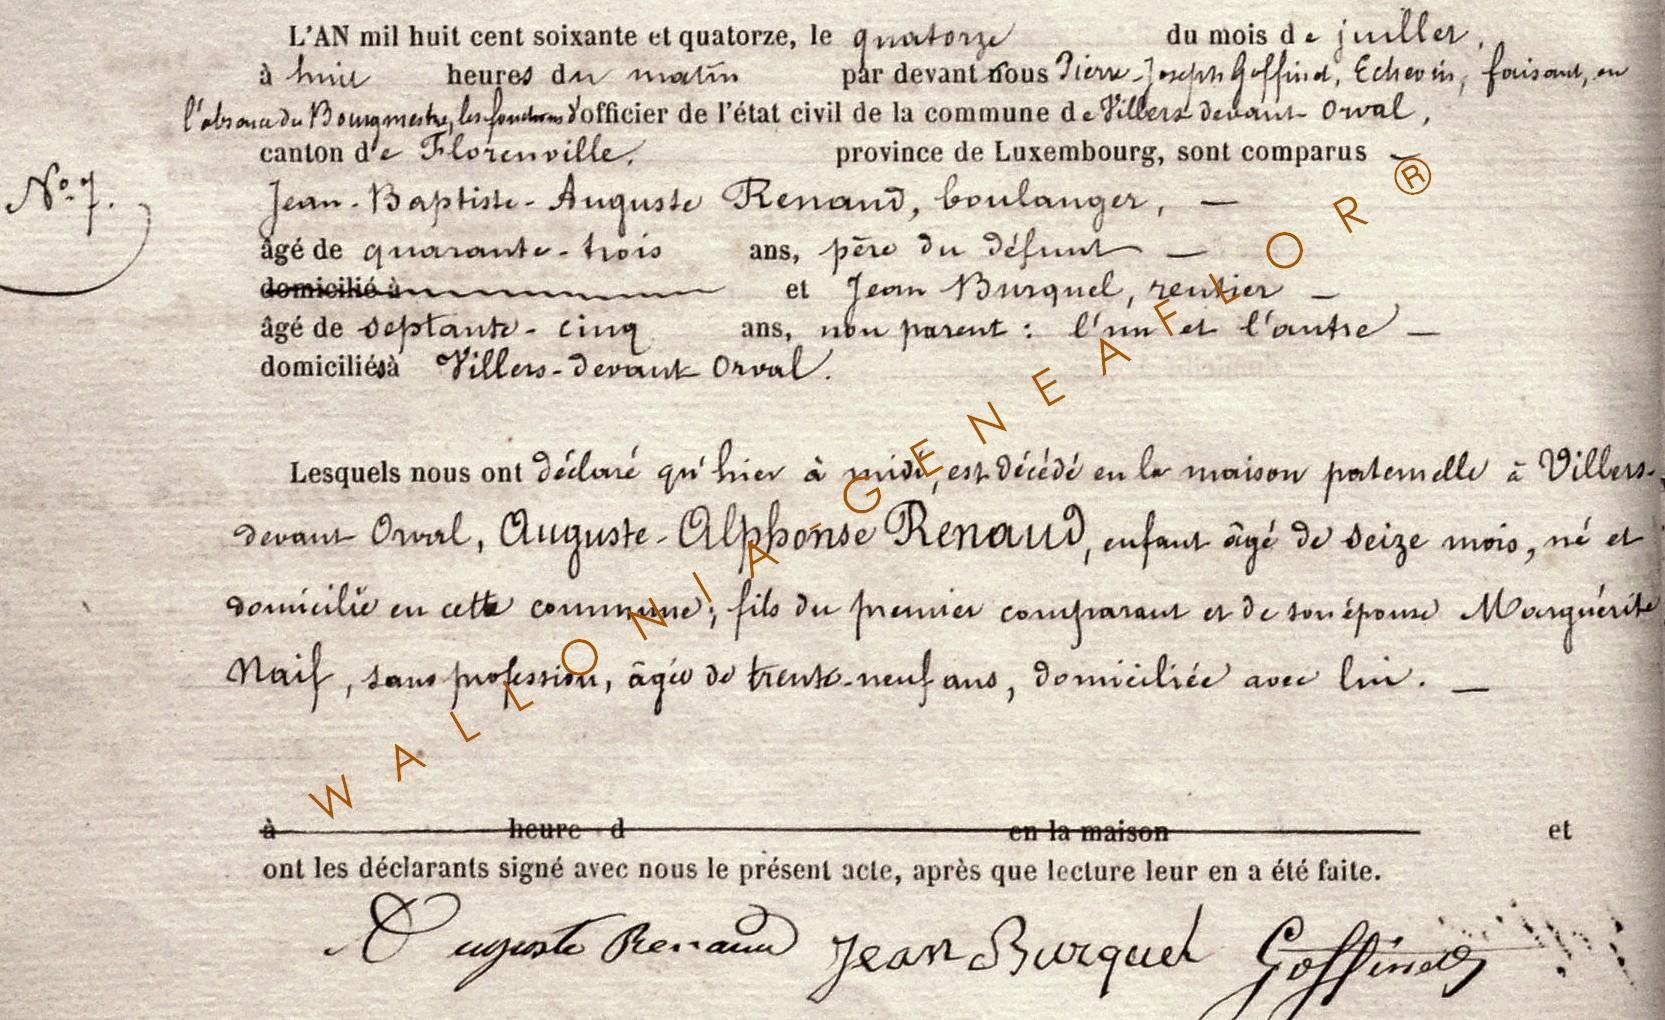 L'AN mil huit cent soixante et quatorze, le quatorze du mois de juillet,
à huit heures du matin par devant nous Pierre-Joseph Goffinet, Echevin, faisant, en
l'absence du Bourgmestre, les fonctions d'officier de l'état civil de la commune de Villers devant Orval,
canton de Florenville. province de Luxembourg, sont comparus —
N.º 7.
Jean-Baptiste-Auguste Renaud, boulanger, —
âgé de quarante-trois ans, père du défunt —
domicilié à et Jean Burquel, rentier —
âgé de septante-cinq ans, non parent : l'un et l'autre —
domiciliés à Villers-devant Orval.
Lesquels nous ont déclaré qu'hier à midi, est décédé en la maison paternelle à Villers-
devant Orval, Auguste-Alphonse Renaud, enfant âgé de seize mois, né et
domicilié en cette commune; fils du premier comparant et de son épouse Marguérite
Naif, sans profession, âgée de trente-neuf ans, domiciliée avec lui. —
à heure d en la maison et
ont les déclarants signé avec nous le présent acte, après que lecture leur en a été faite.
Auguste Renaud Jean Burquel Goffinet
WALLONIA-GENEAFLOR®